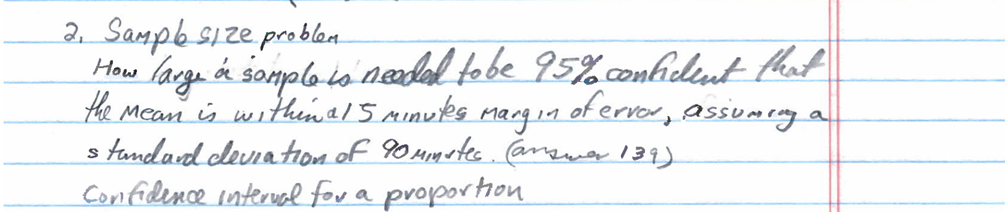 2. Sample size problem
How large a sample is needed to be 95% confident that
the mean is within a 15 minutes margin of error, assuming a
standard deviation of 90 minutes. (answer 139)
Confidence interval for a proportion